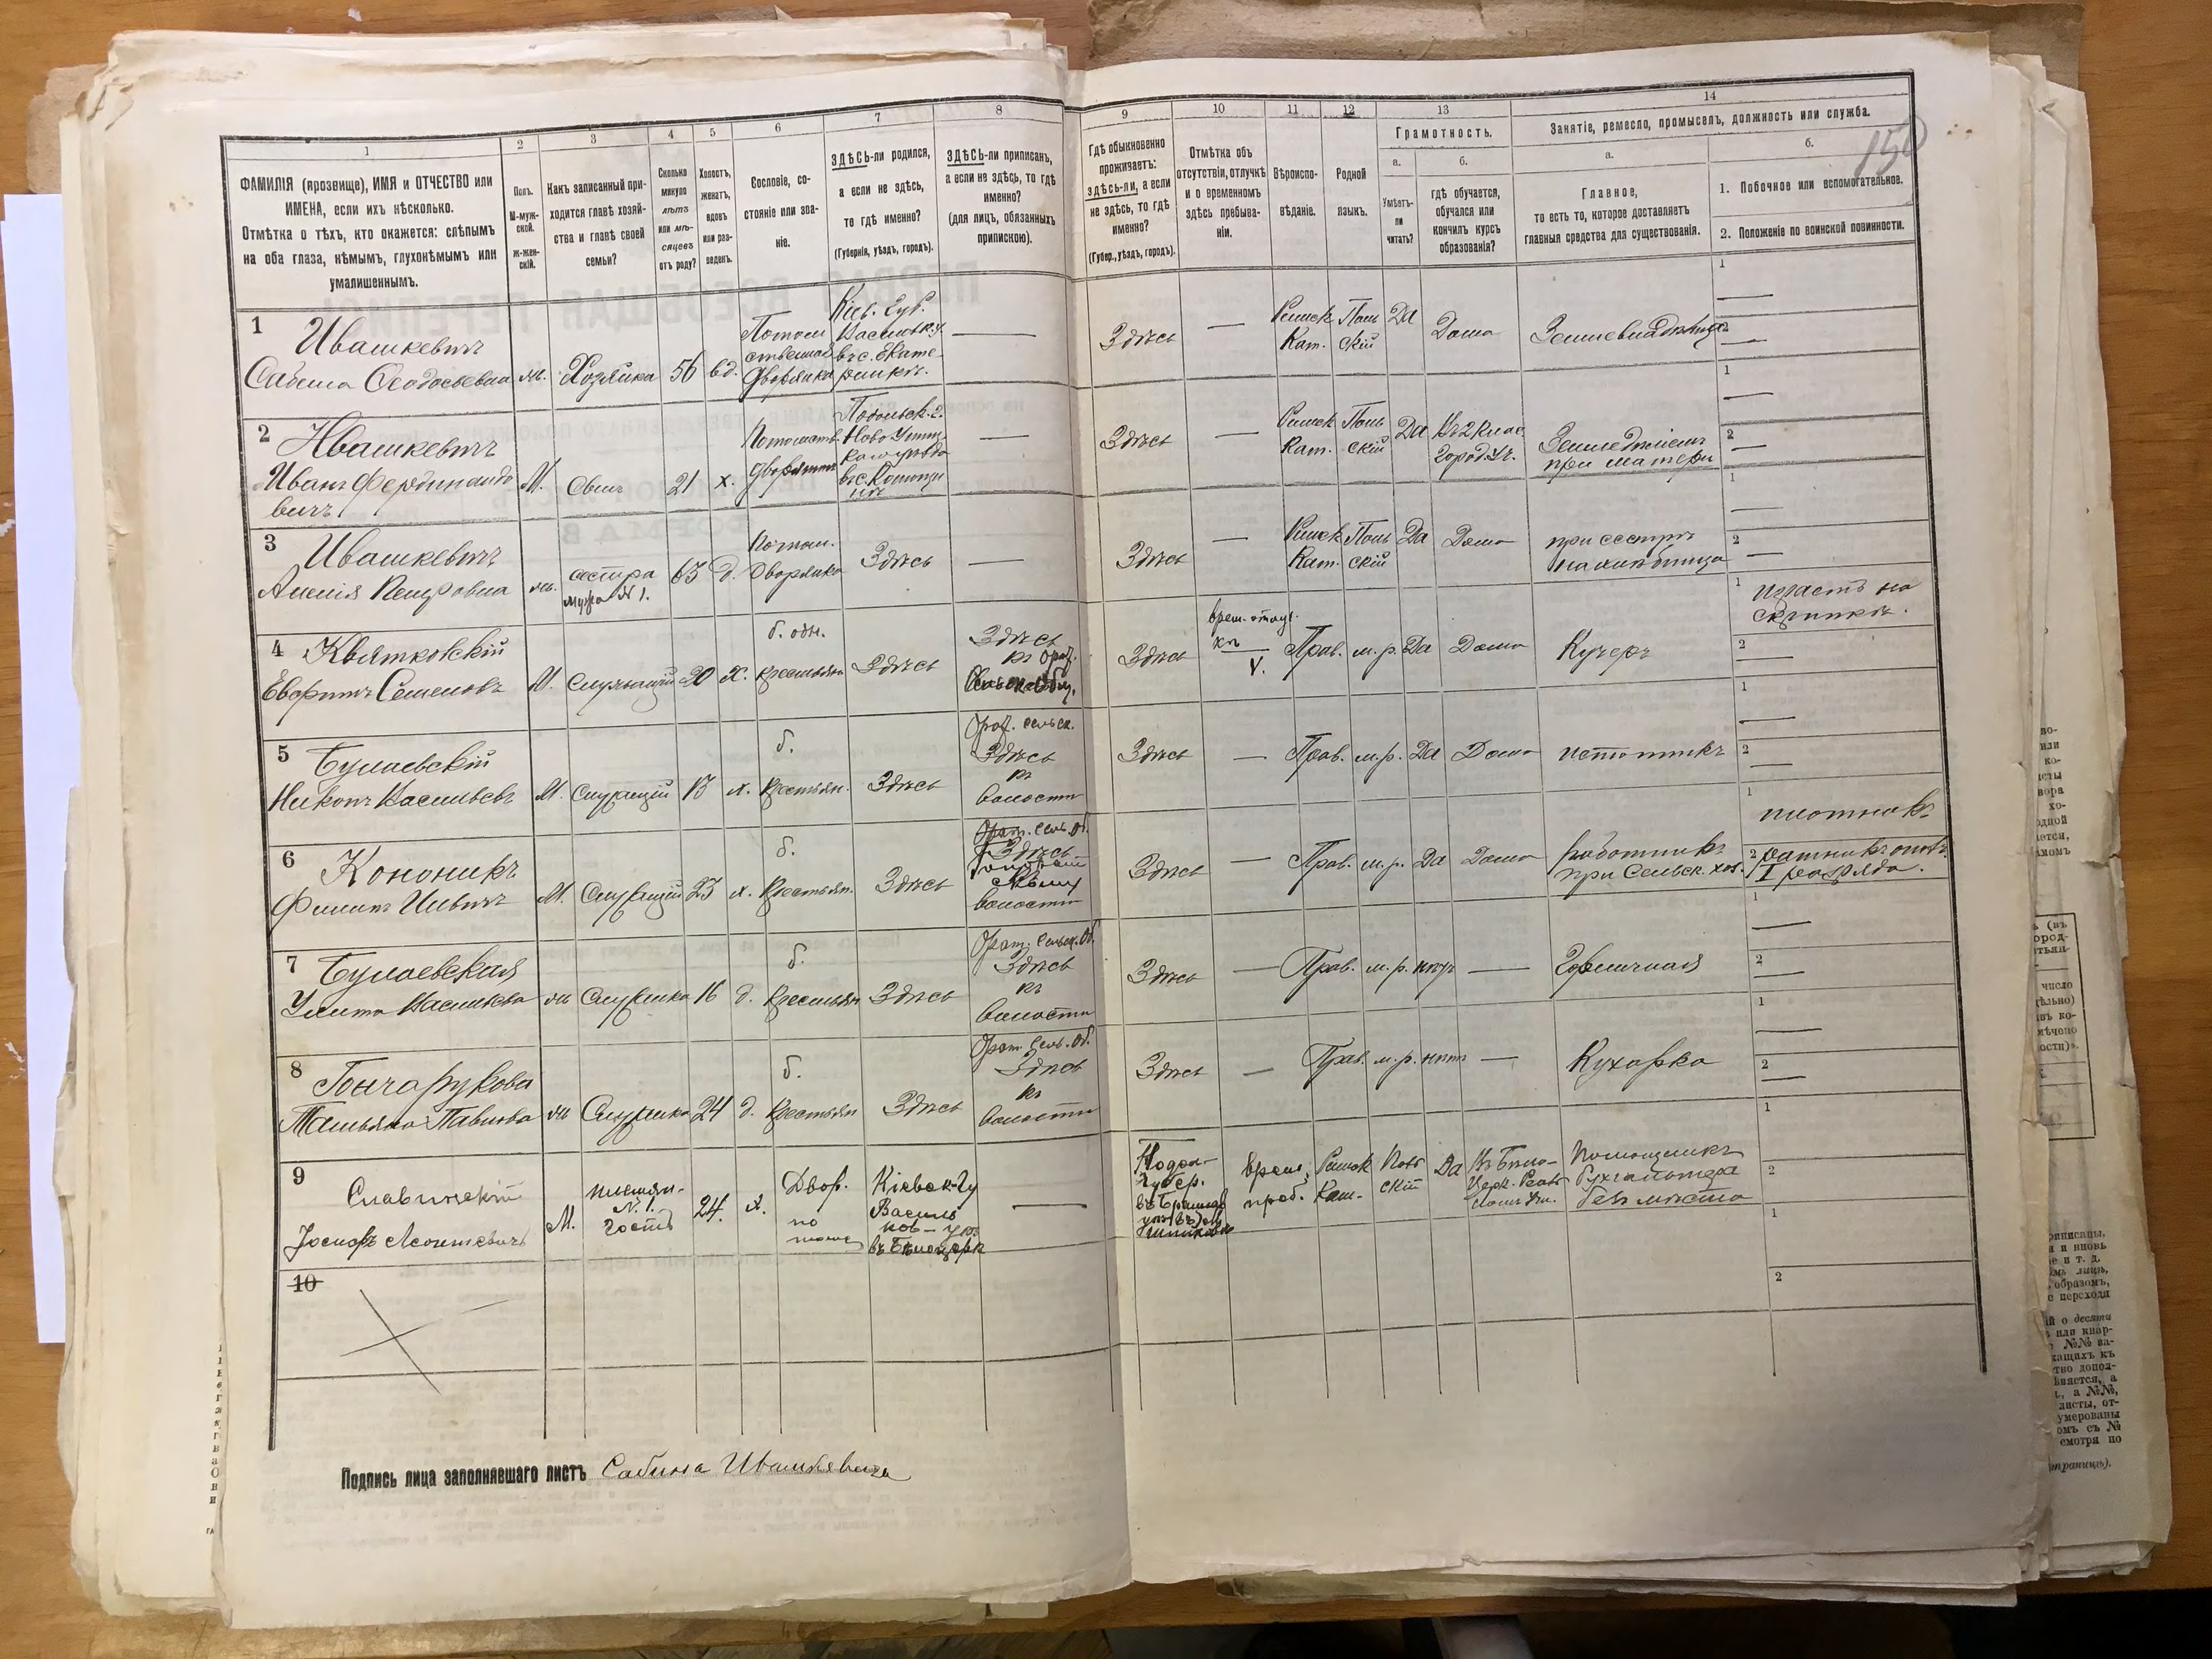 1
2
3
4
5
6
7
8
ФАМИЛІЯ (прозвище), ИМЯ и ОТЧЕСТВО или
ИМЕНА, если ихъ нѣсколько.
Отмѣтка о тѣхъ, кто окажется: слѣпымъ
на оба глаза, нѣмымъ, глухонѣмымъ или
умалишеннымъ.
Полъ.
М-муж-
ской.
Ж-жен-
скій.
Какъ записанный при-
ходится главѣ хозяй-
ства и главѣ своей
семьи?
Сколько
минуло
лѣтъ
или мѣ-
сяцевъ
отъ роду?
Холостъ,
женатъ,
вдовъ
или раз-
веденъ.
Сословіе, со-
стояніе или зва-
ніе.
ЗДѢСЬ-ли родился,
а если не здѣсь,
то гдѣ именно?
(Губернія, уѣздъ, городъ).
ЗДѢСЬ-ли приписанъ,
а если не здѣсь, то гдѣ
именно?
(для лицъ, обязанныхъ
припискою).
9
10
11
12
13
14
Гдѣ обыкновенно
проживаетъ:
здѣсь-ли, а если
не здѣсь, то гдѣ
именно?
(Губер., уѣздъ, городъ).
Отмѣтка объ
отсутствіи, отлучкѣ
и о временномъ
здѣсь пребыва-
ніи.
Вѣроиспо-
вѣданіе.
Родной
языкъ.
Грамотность.
а.
б.
Умѣетъ-
ли
читать?
гдѣ обучается,
обучался или
кончилъ курсъ
образованія?
Занятіе, ремесло, промыселъ, должность или служба.
а.
б.
Главное,
то есть то, которое доставляетъ
главныя средства для существованія.
1. Побочное или вспомогательное.
2. Положеніе по воинской повинности.
150
1
Ивашкевичъ
Сабина Ѳеодосьевна
ж.
Хозяйка
56
вд.
Потом
ственная
дворянка
Кіев. Губ.
Васильк. у.
въ с. Екате-
ринк.
Здѣсь
Римск
Кат.
Поль
скій
Да
Дома
Землевладѣлица
1
2
2
Ивашкевичъ
Иванъ Фердинандо
вичъ
М.
Сынъ
21
х.
Потомств.
дворянинъ
Подольск. г.
Ново Ушиц
Здѣсь
Римск
Кат.
Поль
скій
Да
Въ 2 клас.
Город. Уч.
Земледѣліемъ
при матери
1
2
3
Ивашкевичъ
Амелія Петровна
ж.
сестра
мужа № 1.
63
д.
Потом.
дворянка
Здѣсь
Здѣсь
Римск
Кат.
Поль
скій
Да
Дома
при сестрѣ
нахлѣбница
1
2
4
Квятковскій
Семеновъ
М.
Служащій
20
х.
б. одн.
крестьян
Здѣсь
Здѣсь
къ
Здѣсь
V.
Прав.
м. р.
Да
Дома
Кучеръ
1
играетъ на
скрипкѣ.
2
5
Булаевскій
Никонъ Васильевъ
М.
Служащій
13
х.
б.
крестьян.
Здѣсь
Здѣсь
къ
волости
Здѣсь
Прав.
м. р.
Да
Дома
истопникъ
1
2
6
Кононикъ
Филипъ
М.
Служащій
23
х.
б.
Крестьян.
Здѣсь
Здѣсь
волости
Здѣсь
Прав.
м. р.
Да
Дома
работникъ
при Сельск. хоз.
1
плотникъ
2 ратникъ опол.
I разряда.
7
Булаевская
Улита Васильева
ж
Служанка
16
д.
б.
Крестьян
Здѣсь
Здѣсь
къ
волости
Здѣсь
Прав.
м. р.
нѣтъ
Горничная
1
2
8
Гончарукова
Татьяна Павлова
ж
Служанка
24
д.
б.
Крестьян
Здѣсь
Здѣсь
къ
волости
Здѣсь
Прав.
м. р.
нѣтъ
Кухарка
1
2
9
Славинскій
Іосифъ Леонтьевичъ
М.
племян-
№ 1.
гость
24.
х.
Двор.
по
Кіевск-Гу
Василь
ков-уѣз
въ Бѣлоцерк
Подол-
Губер.
врем.
преб.
Римск
Кат-
Поль
скій
Да
Въ Бѣло-
Церк. Реал
Помощникъ
бухгалтера
безъ мѣста
1
2
10
1
2
Подпись лица заполнявшаго листъ Сабина Ивашкевичъ